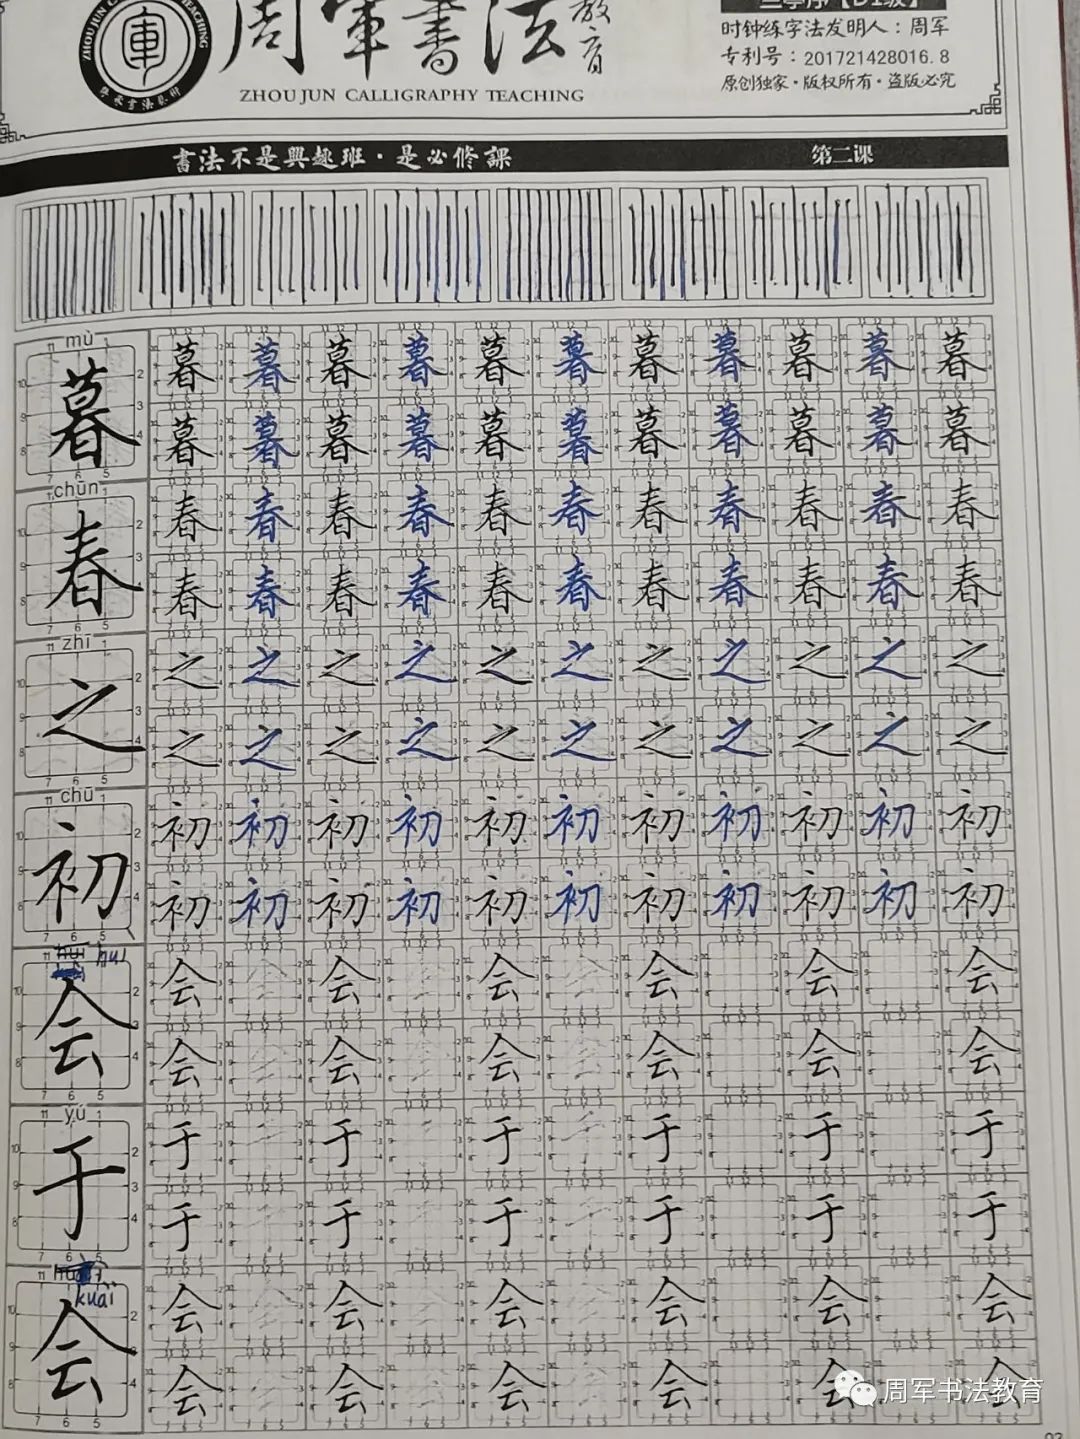 周軍書法教育
ZHOU JUN CALLIGRAPHY TEACHING
兰亭序【D1级】
时钟练字法发明人：周军
专利号：201721428016.8
原创独家·版权所有·盗版必究
書法不是興趣班·是必修課 第二课
mù
暮 暮 暮 暮 暮 暮 暮 暮 暮 暮 暮 暮
暮 暮 暮 暮 暮 暮 暮 暮 暮 暮 暮
chūn
春 春 春 春 春 春 春 春 春 春 春 春
春 春 春 春 春 春 春 春 春 春 春
zhī
之 之 之 之 之 之 之 之 之 之 之 之
之 之 之 之 之 之 之 之 之 之 之
chū
初 初 初 初 初 初 初 初 初 初 初 初
初 初 初 初 初 初 初 初 初 初 初
hui
会 会 会 会 会 会 会
会 会 会 会 会 会
yú
于 于 于 于 于 于 于
于 于 于 于 于 于
kuài
会 会 会 会 会 会 会
会 会 会 会 会 会
周军书法教育